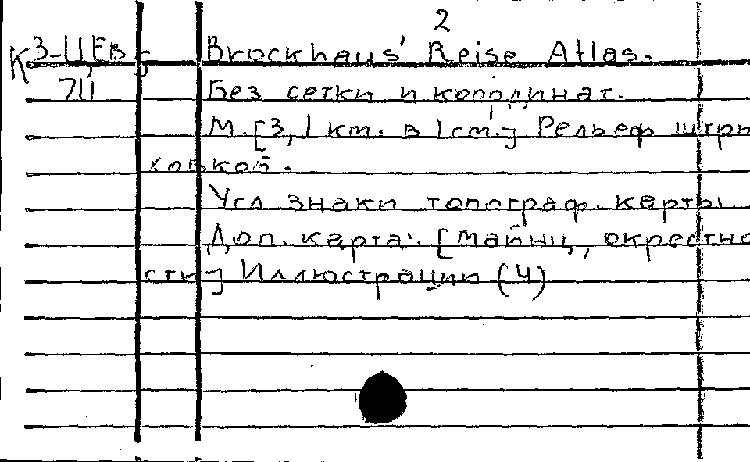 2
К 3-ЦЕв 5 Brockhaus' Reise Atlas.
7Ц Без сетки и координат.
М. [3,1 км. в 1 см.] Рельеф штри
ховкой.
Усл знаки топограф. карты
Доп. карта: [Майнц, окрестно
сти] Иллюстрации (4)